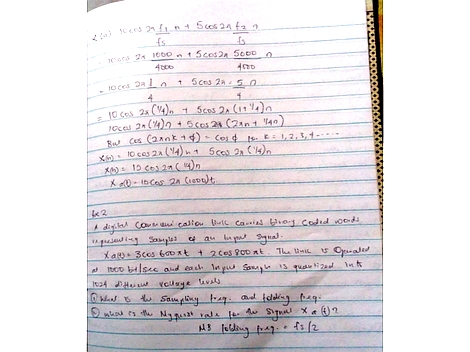 2(a) 10cos 2π f1/fs n + 5cos 2π f2/fs n
= 10cos 2π 1000/4000 n + 5cos 2π 5000/4000 n
= 10cos 2π 1/4 n + 5cos 2π 5/4 n
= 10cos 2π (1/4)n + 5cos 2π (1+1/4)n
10cos 2π (1/4)n + 5cos 2π (2πn + 1/4n)
But cos (2πnk + ϕ) = cos ϕ for k = 1, 2, 3, 4 -----
X(n) = 10cos 2π (1/4)n + 5cos 2π (1/4)n
X(n) = 15 cos 2π (1/4)n
Xa(t) = 10cos 2π (1000)t.
Ex 2
A digital communication link carries binary coded words
representing samples of an input signal.
Xa(t) = 3cos 600πt + 2cos 800πt. The link is operated
at 1000 bit/sec and each input sample is quantized into
1024 different voltage levels
① What is the sampling freq. and folding freq.
② what is the Nyquist rate for the signal Xa(t)?
NB folding freq. = fs/2